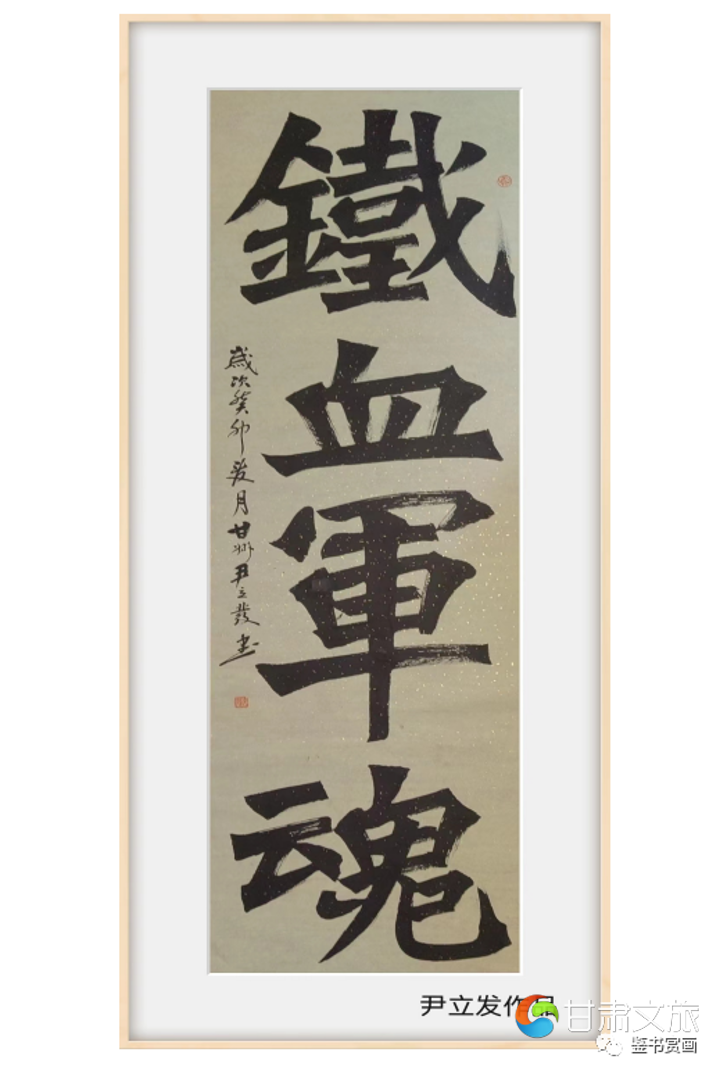 鐵血軍魂
歲次癸卯夏月甘州尹立發書
尹立发作品
甘肃文旅
鉴书赏画